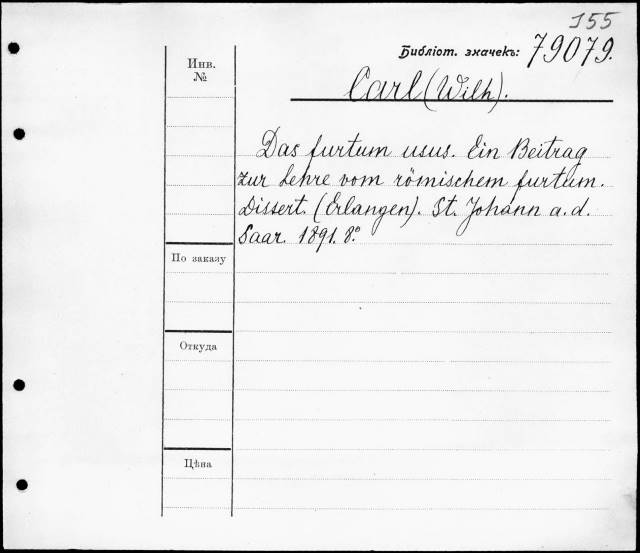 155
Библіот. значекъ: 79079.
Инв. №
Carl (Wilh).
Das furtum usus. Ein Beitrag
zur Lehre vom römischem furtum.
Dissert. (Erlangen). St. Johann a. d.
Saar. 1891. 8°.
По заказу
Откуда
Цѣна